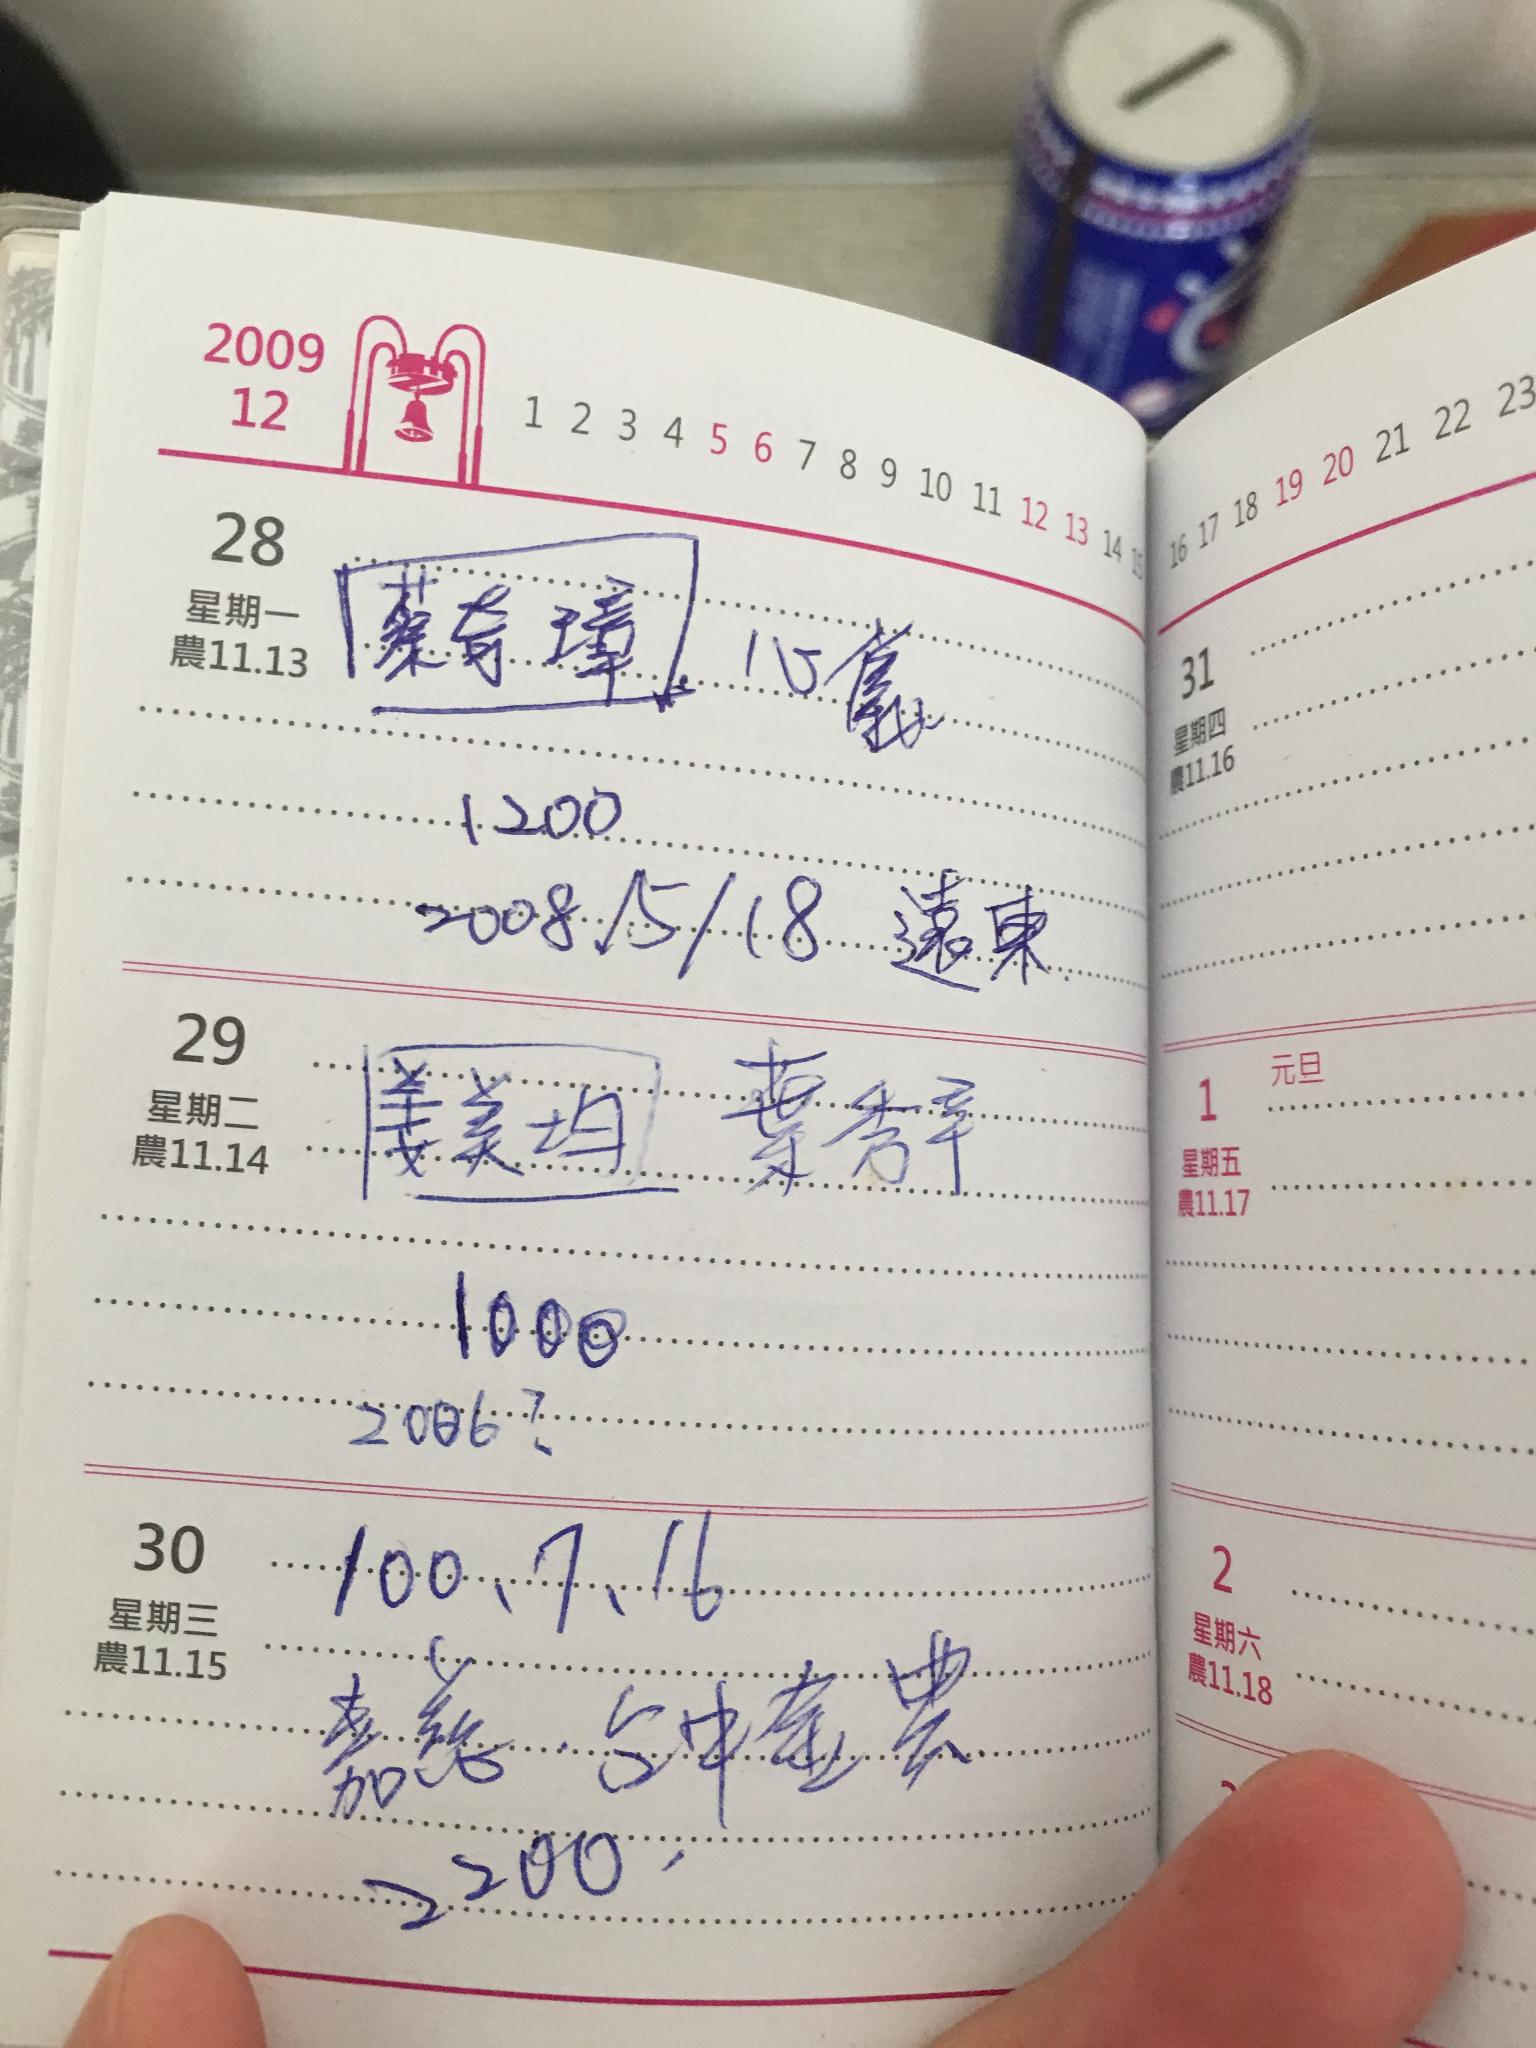 2009
12
1 2 3 4 5 6 7 8 9 10 11 12 13 14 15
28
星期一
農11.13
蔡育璋 心儀
1200
2008/5/18 遠東
29
星期二
農11.14
姜美均 葉秀平
1000
2006?
30
星期三
農11.15
100、7、16
嘉慈 台中 農
2200
16 17 18 19 20 21 22 23
31
星期四
農11.16
1
元旦
星期五
農11.17
2
星期六
農11.18